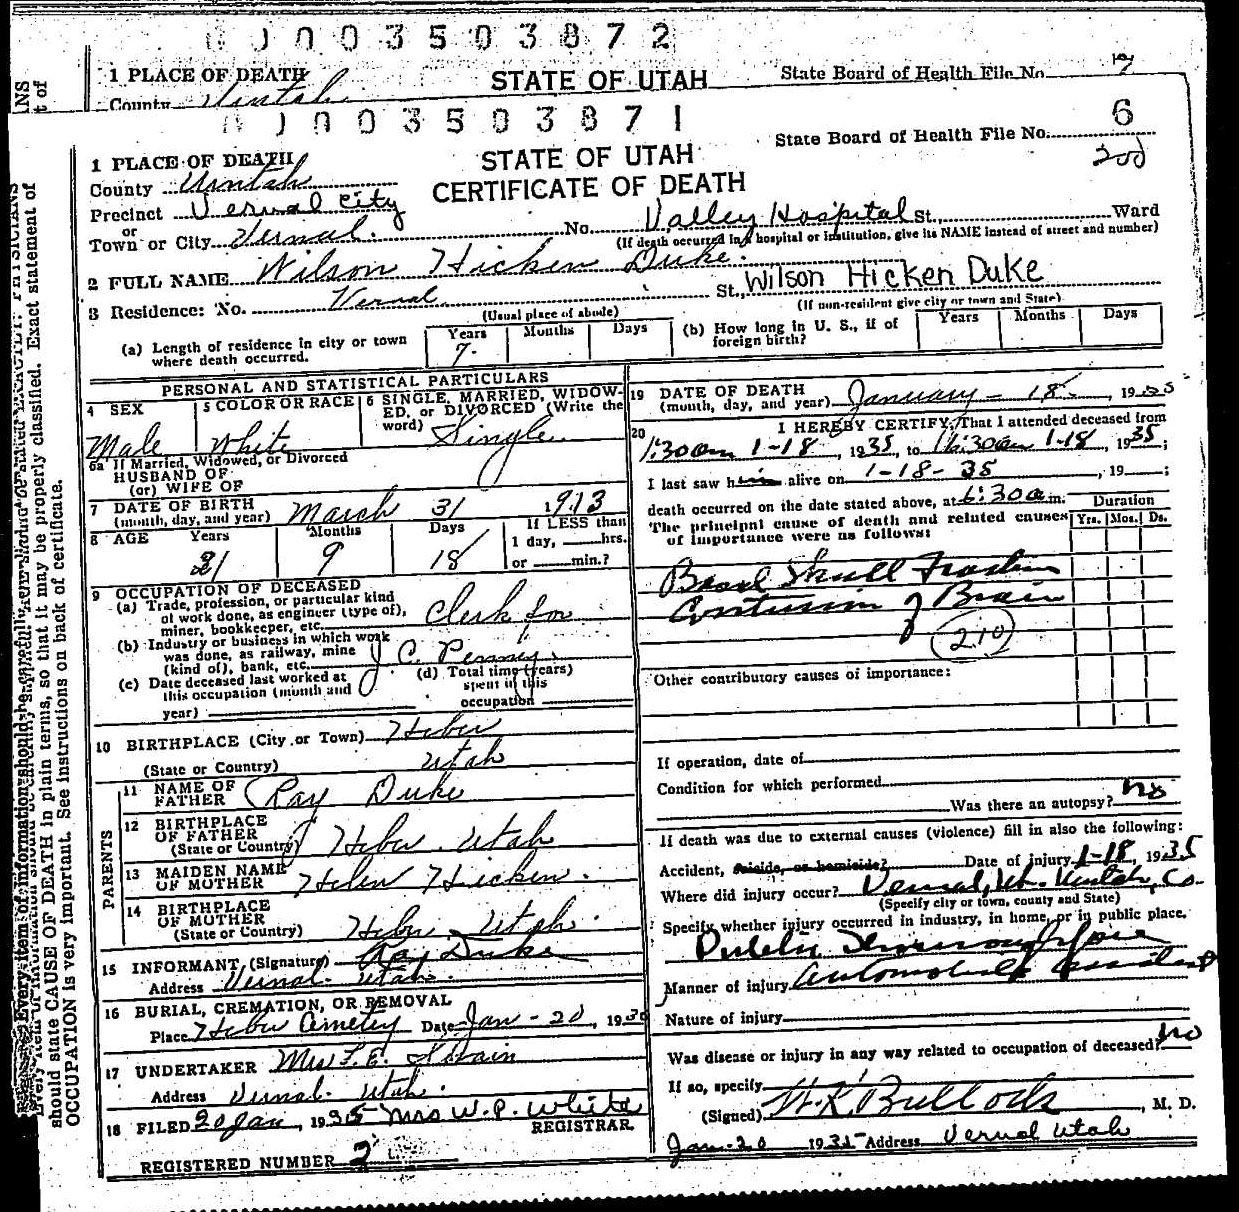 0003503872
1 PLACE OF DEATH
STATE OF UTAH
State Board of Health File No. 7
County Uintah
0003503871
State Board of Health File No. 6
200
1 PLACE OF DEATH
STATE OF UTAH
County Uintah
CERTIFICATE OF DEATH
Precinct Vernal City
or
Town or City Vernal. No. Valley Hospital St., Ward
(If death occurred in a hospital or institution, give its NAME instead of street and number)
2 FULL NAME Wilson Hicken Duke.
3 Residence: No. Vernal St., Wilson Hicken Duke
(Usual place of abode)
(If non-resident give city or town and State)
(a) Length of residence in city or town where death occurred. Years 7. Months Days
(b) How long in U. S., if of foreign birth? Years Months Days
PERSONAL AND STATISTICAL PARTICULARS
4 SEX
Male
5 COLOR OR RACE
White
6 SINGLE, MARRIED, WIDOW-
ED, or DIVORCED (Write the
word) Single
6a If Married, Widowed, or Divorced
HUSBAND OF
(or) WIFE OF
7 DATE OF BIRTH
(month, day, and year) March 31 1913
8 AGE Years Months Days If LESS than
1 day, hrs.
21 9 18 or min.?
9 OCCUPATION OF DECEASED
(a) Trade, profession, or particular kind
of work done, as engineer (type of),
miner, bookkeeper, etc. Clerk for
(b) Industry or business in which work
was done, as railway, mine
(kind of), bank, etc. J C. Penney.
(c) Date deceased last worked at
this occupation (month and
year)
(d) Total time (years)
spent in this
occupation
10 BIRTHPLACE (City or Town) Heber
(State or Country) Utah
PARENTS
11 NAME OF
FATHER Ray Duke
12 BIRTHPLACE
OF FATHER
(State or Country) Heber Utah
13 MAIDEN NAME
OF MOTHER Helen Hicken.
14 BIRTHPLACE
OF MOTHER
(State or Country) Heber Utah.
15 INFORMANT (Signature) Ray Duke
Address Vernal. Utah.
16 BURIAL, CREMATION, OR REMOVAL
Place Heber Cemetery Date Jan - 20, 193
17 UNDERTAKER Mrs
Address Vernal. Utah.
18 FILED 20 Jan, 1935 Mrs W. P. White
REGISTRAR.
REGISTERED NUMBER 2
19 DATE OF DEATH
(month, day, and year) January - 18 1935
20 I HEREBY CERTIFY, That I attended deceased from
1:30am 1-18, 1935, to 6:30am 1-18, 1935;
I last saw him alive on 1-18-35, 19 ;
death occurred on the date stated above, at 6:30a m.
Duration
Yrs. Mos. Ds.
The principal cause of death and related causes
of importance were as follows:
Basal Skull Fracture
Contusion of Brain
210
Other contributory causes of importance:
If operation, date of
Condition for which performed
Was there an autopsy? no
If death was due to external causes (violence) fill in also the following:
Accident, suicide, or homicide? Date of injury 1-18, 1935
Where did injury occur? Vernal, Ut. Uintah, Co.
(Specify city or town, county and State)
Specify whether injury occurred in industry, in home, or in public place.
Public Thoroughfare
Manner of injury Automobile accident
Nature of injury
Was disease or injury in any way related to occupation of deceased? No
If so, specify
(Signed) H. K. Bullock, M. D.
Jan-20 1935 Address Vernal Utah
should state CAUSE OF DEATH in plain terms, so that it may be properly classified. Exact statement of
OCCUPATION is very important. See instructions on back of certificate.